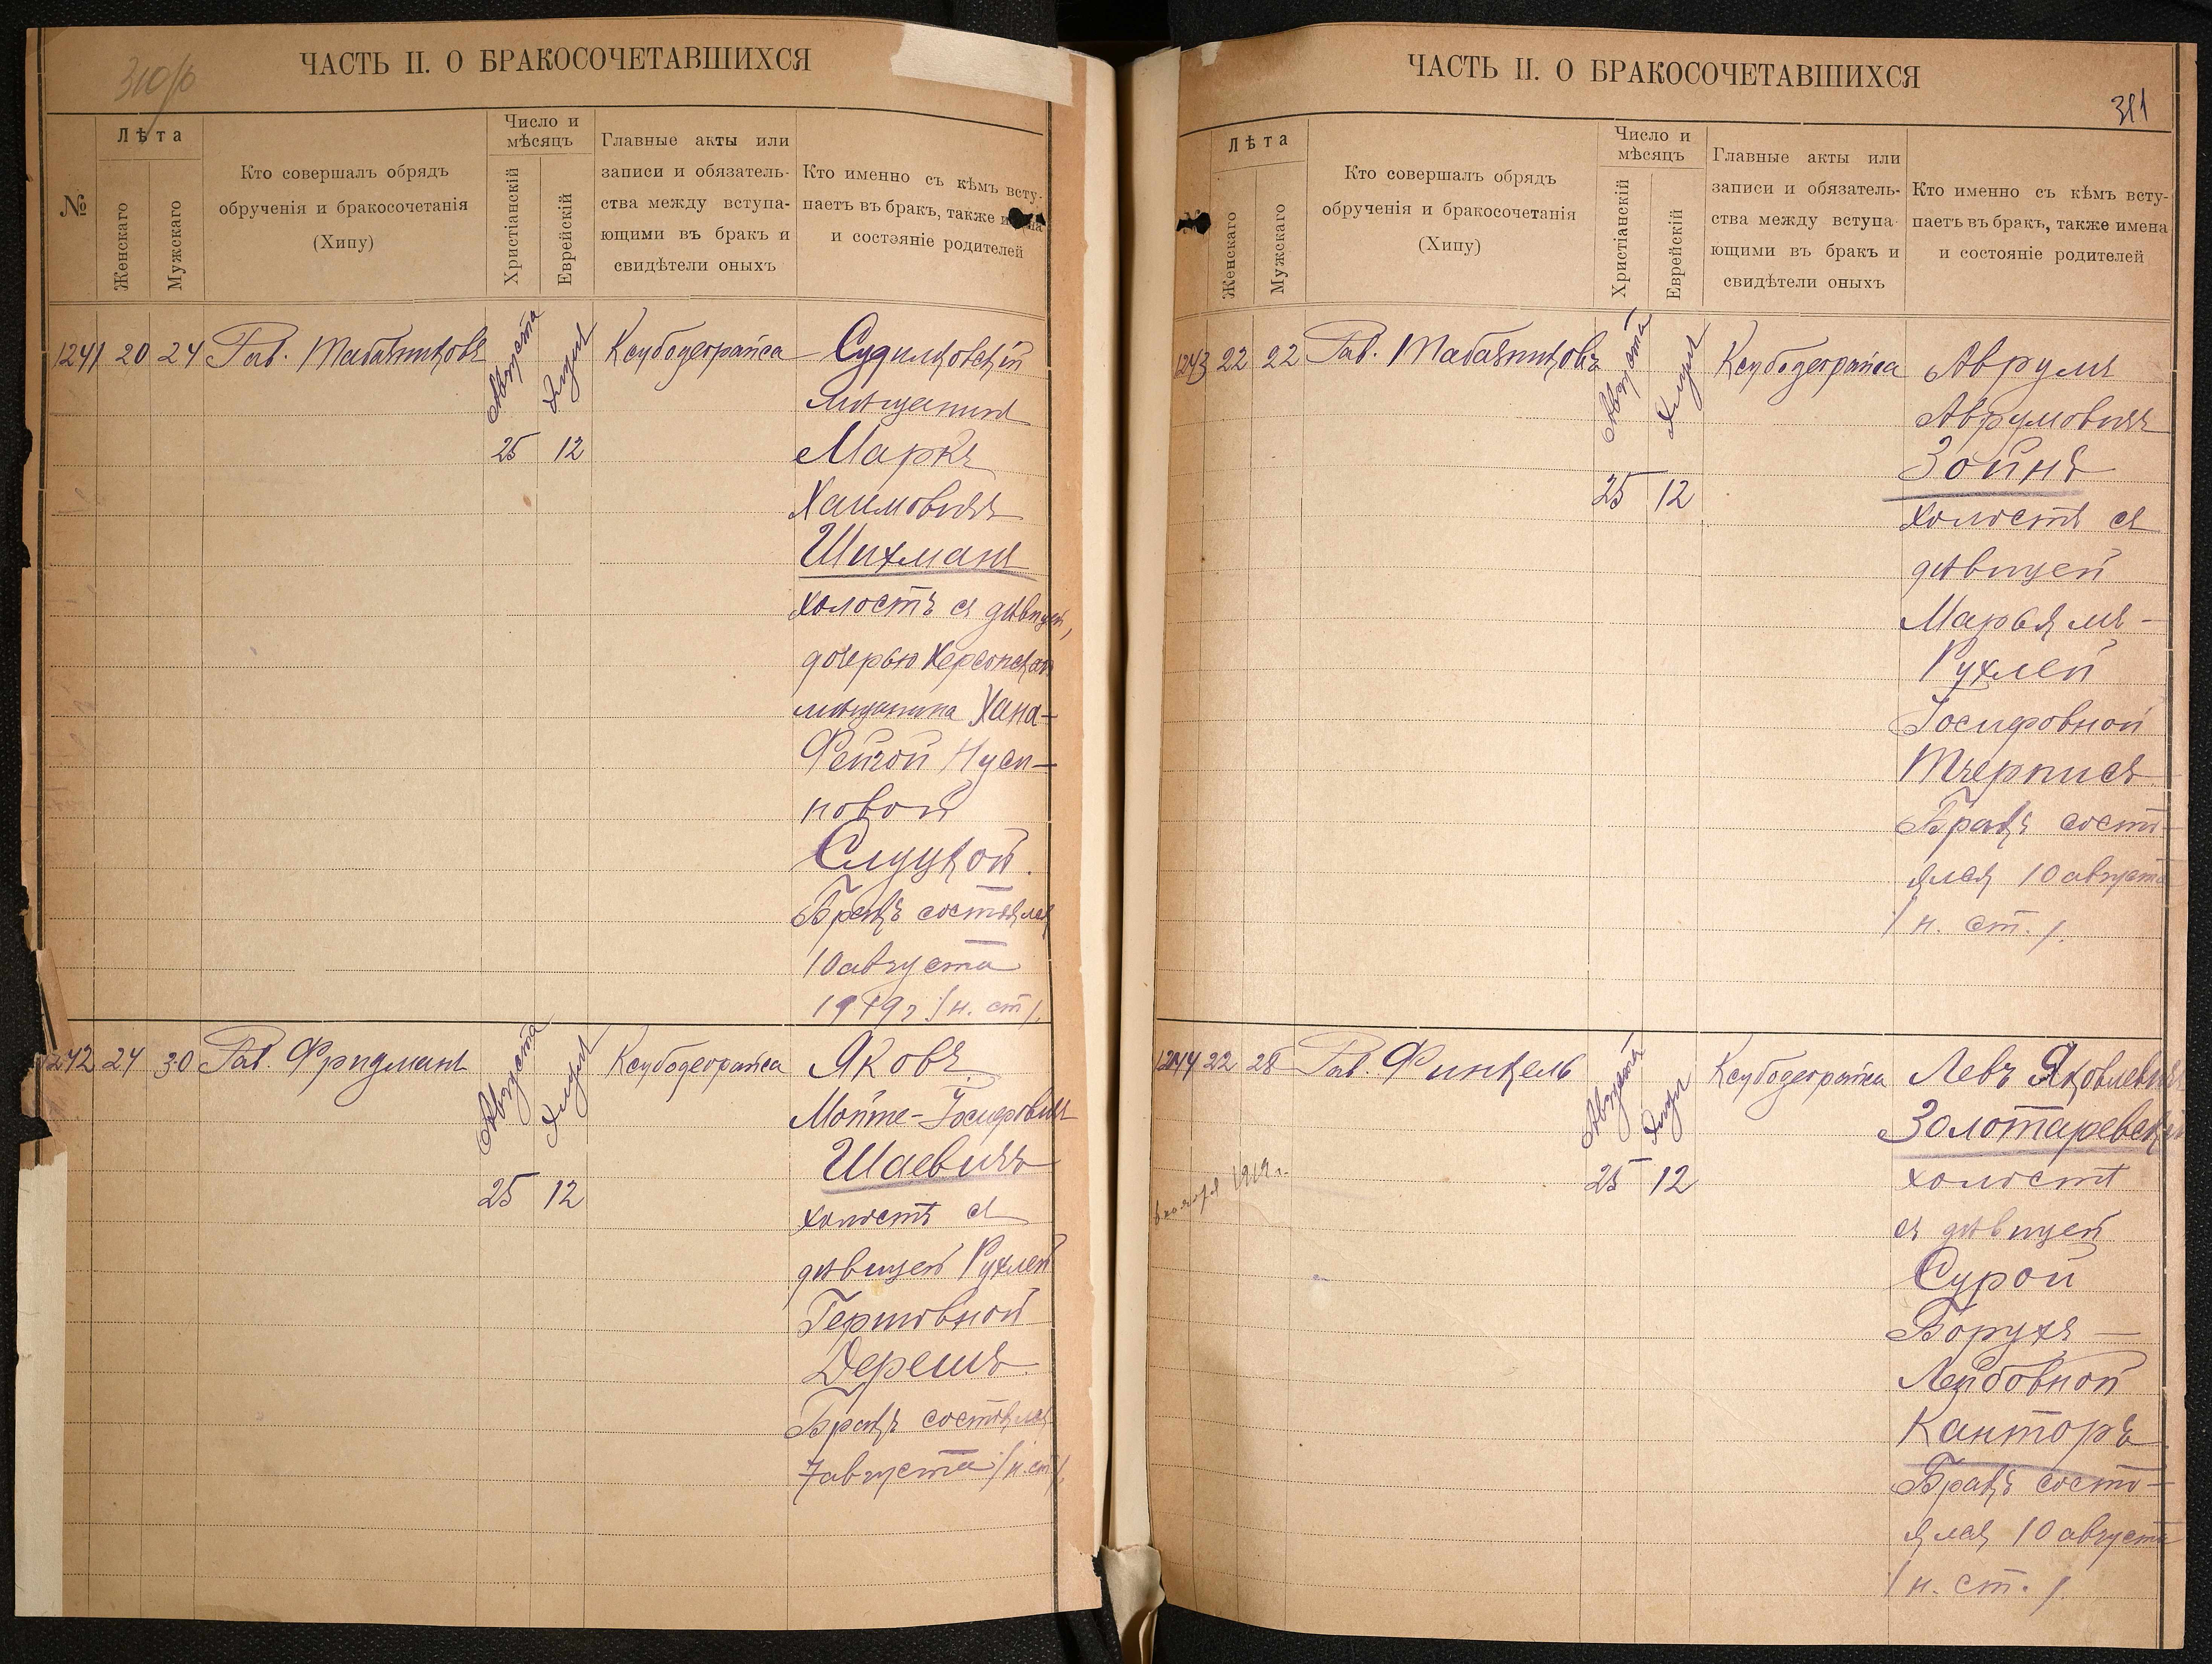 310/0
ЧАСТЬ II. О БРАКОСОЧЕТАВШИХСЯ
№
Лѣта
Женскаго
Мужскаго
Кто совершалъ обрядъ
обрученія и бракосочетанія
(Хипу)
Число и
мѣсяцъ
Христіанскій
Еврейскій
Главные акты или
записи и обязатель-
ства между вступа-
ющими въ бракъ и
свидѣтели оныхъ
Кто именно съ кѣмъ всту-
паетъ въ бракъ, также имена
и состояніе родителей
1241 20 24 Рав. Табачниковъ
Августа
Элулъ
25 12
Ксубодеорайса
Судилковскій
мѣщанинъ
Маркъ
Хаимовичъ
Шихманъ
холостъ съ дѣвицей,
дочерью Херсонскаго
мѣщанина Хана-
Фейгой Нуси-
новой
Слуцкой.
Бракъ состоялся
10 августа
1919 г. /н. ст/.
1242 24 30 Рав. Фридманъ
Августа
Элулъ
25 12
Ксубодеорайса
Яковъ
Мойше-Іосифовичъ
Шаевичъ
холостъ съ
дѣвицей Рухлей
Гершовной
Дерешъ.
Бракъ состоялся
7 августа /н. ст/.
ЧАСТЬ II. О БРАКОСОЧЕТАВШИХСЯ
311
№
Лѣта
Женскаго
Мужскаго
Кто совершалъ обрядъ
обрученія и бракосочетанія
(Хипу)
Число и
мѣсяцъ
Христіанскій
Еврейскій
Главные акты или
записи и обязатель-
ства между вступа-
ющими въ бракъ и
свидѣтели оныхъ
Кто именно съ кѣмъ всту-
паетъ въ бракъ, также имена
и состояніе родителей
1243 22 22 Рав. Табачниковъ
Августа
Элулъ
25 12
Ксубодеорайса
Аврумъ
Аврумовичъ
Зойнъ
холостъ съ
дѣвицей
Марьямъ-
Рухлей
Іосифовной
Тчерписъ
Бракъ состо-
ялся 10 августа
/н. ст./.
1244 22 28 Рав. Финкель
Августа
Элулъ
25 12
Ксубодеорайса
Левъ Яковлевичъ
Золотаревскій
холостъ
съ дѣвицей
Сурой
Борухъ-
Лейбовной
Канторъ
Бракъ состо-
ялся 10 августа
/н. ст./.
1919 г.